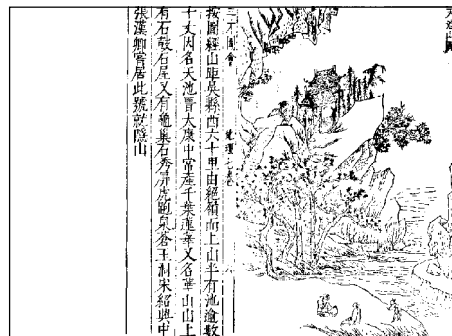 三才圖會
地理七卷
按圖經山距吳縣西六十里由絕嶺而上山半有池逾數
十丈因名天池晉太康中常產千葉蓮華又名華山山上
有石鼓石屋又有龜巢石秀屏虎跑泉蒼玉洞宋紹興中
張漢卿嘗居此號就隱山